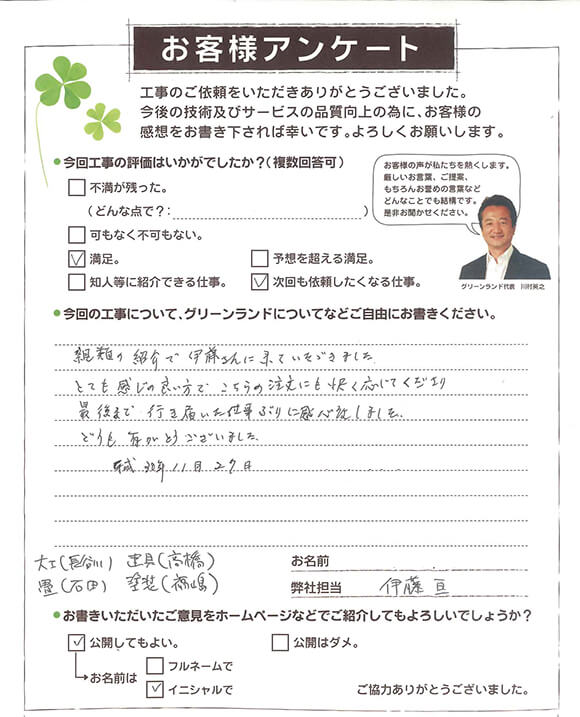 お客様アンケート
工事のご依頼をいただきありがとうございました。
今後の技術及びサービスの品質向上の為に、お客様の
感想をお書き下されば幸いです。よろしくお願いします。
●今回工事の評価はいかがでしたか？（複数回答可）
不満が残った。
（どんな点で？： ）
可もなく不可もない。
満足。 予想を超える満足。
知人等に紹介できる仕事。 次回も依頼したくなる仕事。
お客様の声が私たちを熱くします。
厳しいお言葉、ご提案、
もちろんお誉めの言葉など
どんなことでも結構です。
是非お聞かせください。
グリーンランド代表 川村英之
●今回の工事について、グリーンランドについてなどご自由にお書きください。
親類の紹介で伊藤さんに来ていただきました。
とても感じの良い方でこちらの注文にも快く応じてくださり
最後まで行き届いた仕事ぶりに感心致しました。
どうもありがとうございました。
平成30年11月27日
大工(長谷川) 建具(高橋)
畳(石田) 塗装(福嶋)
お名前
弊社担当 伊藤 亘
●お書きいただいたご意見をホームページなどでご紹介してもよろしいでしょうか？
公開してもよい。 公開はダメ。
お名前は
フルネームで
イニシャルで
ご協力ありがとうございました。